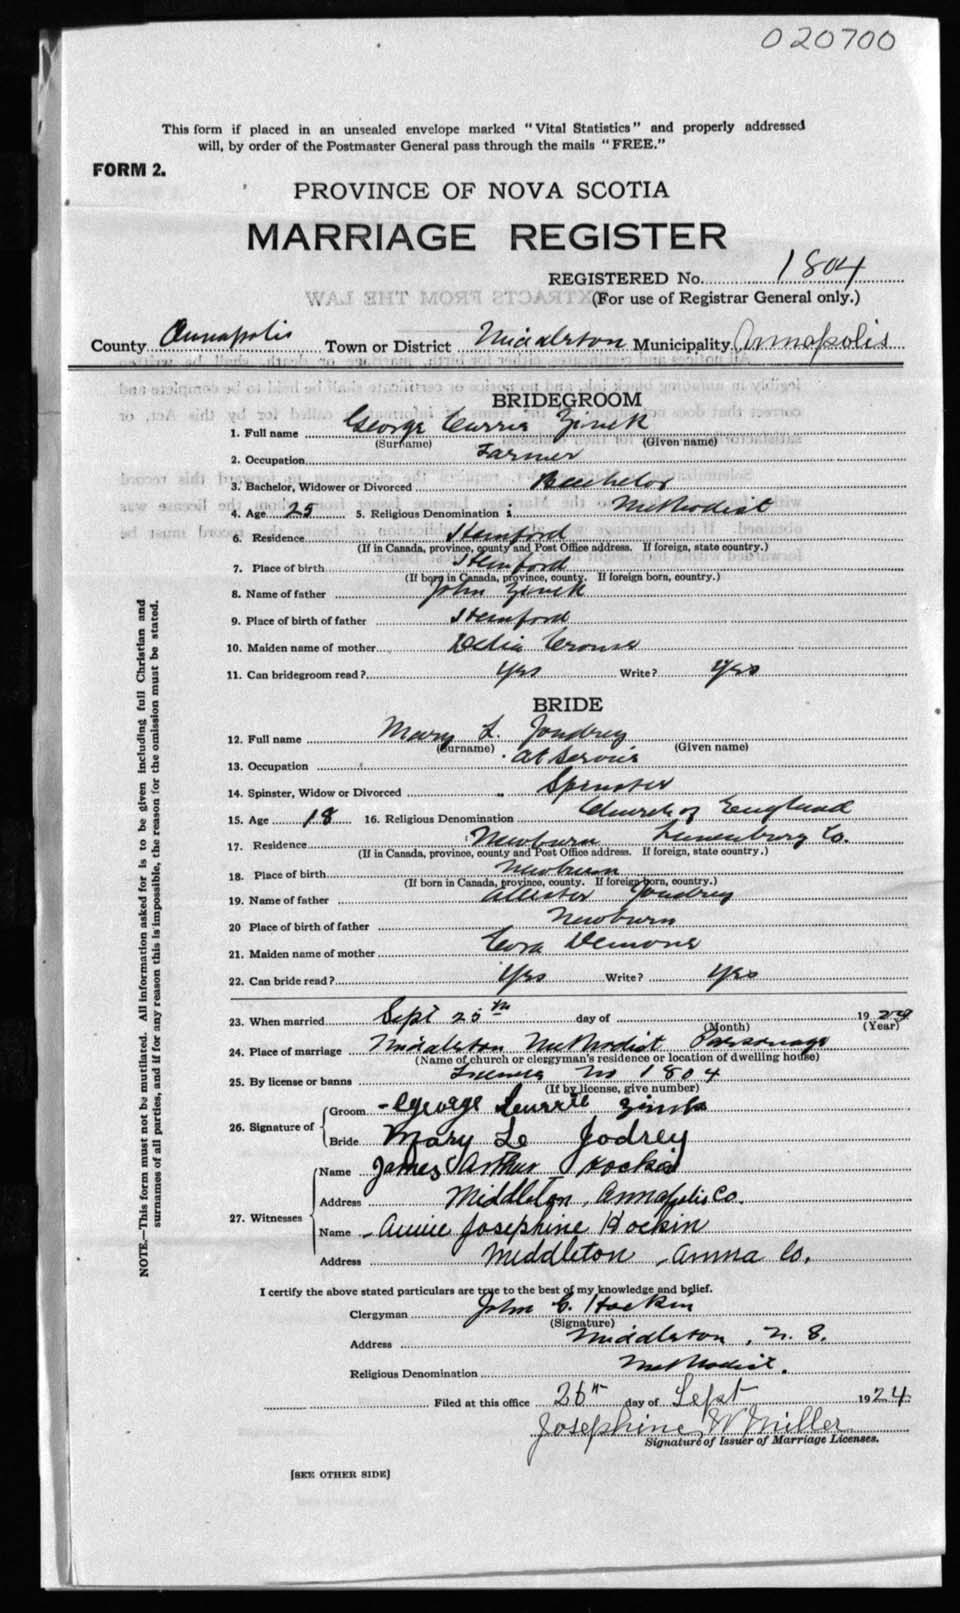 020700
This form if placed in an unsealed envelope marked "Vital Statistics" and properly addressed
will, by order of the Postmaster General pass through the mails "FREE."
FORM 2.
PROVINCE OF NOVA SCOTIA
MARRIAGE REGISTER
REGISTERED No. 1804
(For use of Registrar General only.)
County Annapolis Town or District Middleton Municipality Annapolis
BRIDEGROOM
1. Full name George Currie Zinck
(Surname) (Given name)
2. Occupation Farmer
3. Bachelor, Widower or Divorced Bachelor
4. Age 25 5. Religious Denomination Methodist
6. Residence Stanford
(If in Canada, province, county and Post Office address. If foreign, state country.)
7. Place of birth Stanford
(If born in Canada, province, county. If foreign born, country.)
8. Name of father John Zinck
9. Place of birth of father Stanford
10. Maiden name of mother Delia Crouse
11. Can bridegroom read? Yes Write? Yes
BRIDE
12. Full name Mary L. Joudrey
(Surname) (Given name)
13. Occupation At Service
14. Spinster, Widow or Divorced Spinster
15. Age 18 16. Religious Denomination Church of England
17. Residence Newburn Lunenburg Co.
(If in Canada, province, county and Post Office address. If foreign, state country.)
18. Place of birth Newburn
(If born in Canada, province, county. If foreign born, country.)
19. Name of father Allister Joudrey
20 Place of birth of father Newburn
21. Maiden name of mother Cora Demone
22. Can bride read? Yes Write? Yes
23. When married Sept 25th day of 1924
(Month) (Year)
24. Place of marriage Middleton Methodist Parsonage
(Name of church or clergyman's residence or location of dwelling house)
25. By license or banns License No 1804
(If by license, give number)
26. Signature of Groom George Currie Zinck
Bride Mary Le Jodrey
27. Witnesses Name James Arthur Hockin
Address Middleton, Annapolis Co.
Name Annie Josephine Hockin
Address Middleton, Anna Co.
I certify the above stated particulars are true to the best of my knowledge and belief.
Clergyman John C. Hockin
(Signature)
Address Middleton, N. S.
Religious Denomination Methodist.
Filed at this office 26th day of Sept 1924
Josephine W Miller
Signature of Issuer of Marriage Licenses.
[SEE OTHER SIDE]
NOTE.—This form must not be mutilated. All information asked for is to be given including full Christian and
surnames of all parties, and if for any reason this is impossible, the reason for the omission must be stated.